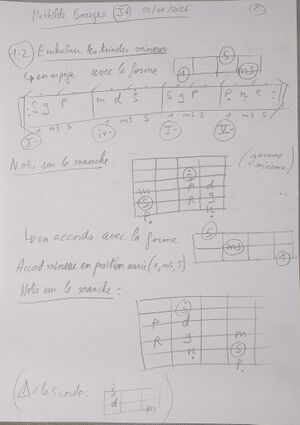 Mathilde Bruezes J2 02/01/2026 ②
1-2 Enchaîner les triades mineures
↳ en arpège avec la forme
5
1 m3
: S g P | m d S | S g P | P n R :
1 m3 5 1 m3 5 1 m3 5 1 m3 5
I- IV- I- V-
Notes sur le manche :
(gamme mineure)
S
m P d
S R g
P n
↳ en accords avec la forme
5
m3
1
Accord mineur en position serrée (1, m3, 5)
Notes sur le manche :
S
P d
R g m
n S
P
à la 5 corde :
S
d m